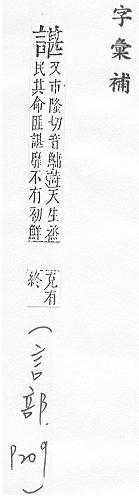 字彙補
諶
又市隆切音鱅詩天生烝
民其命匪諶靡不有初鮮
克有
終
(言部. P209)